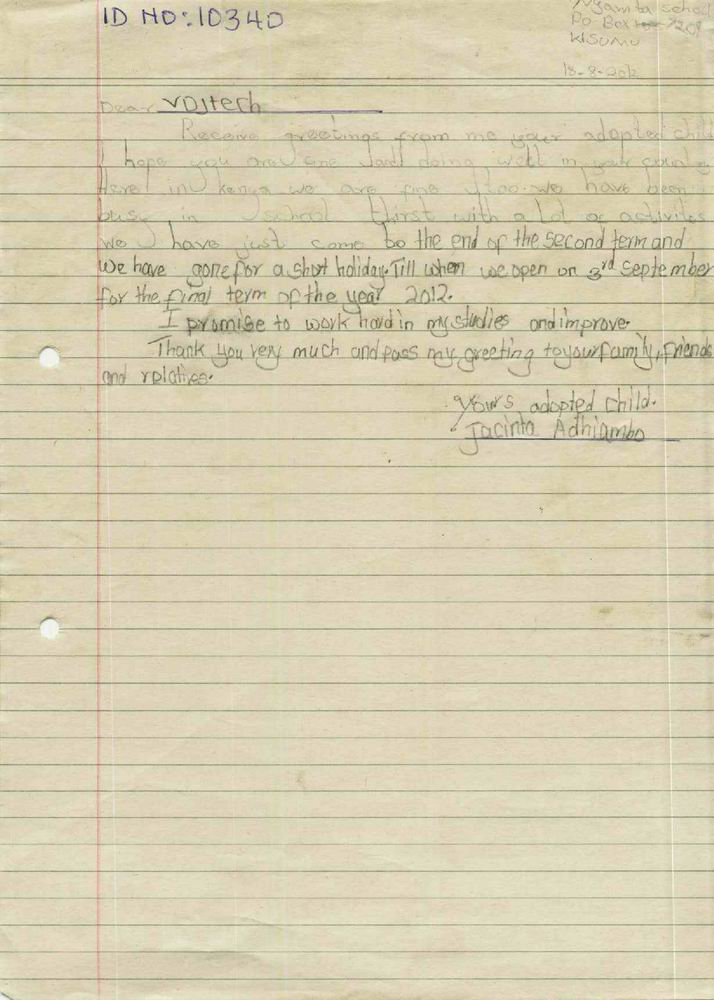 ID NO:10340
school
Po Box 7209
KISUMU
18-8-2012
Dear Vojtech
Receive greetings from me your adopted child
I hope you are fine and doing well in your country
Here in kenya we are fine too. we have been
busy in school thirst with a lot of activites
we have just come to the end of the second term and
we have gone for a short holiday. Till when we open on 3rd september
for the final term of the year 2012.
I promise to work hard in my studies and improve.
Thank you very much and pass my greeting to your family, friends
and relatives.
Yours adopted child.
Jacinta Adhiambo